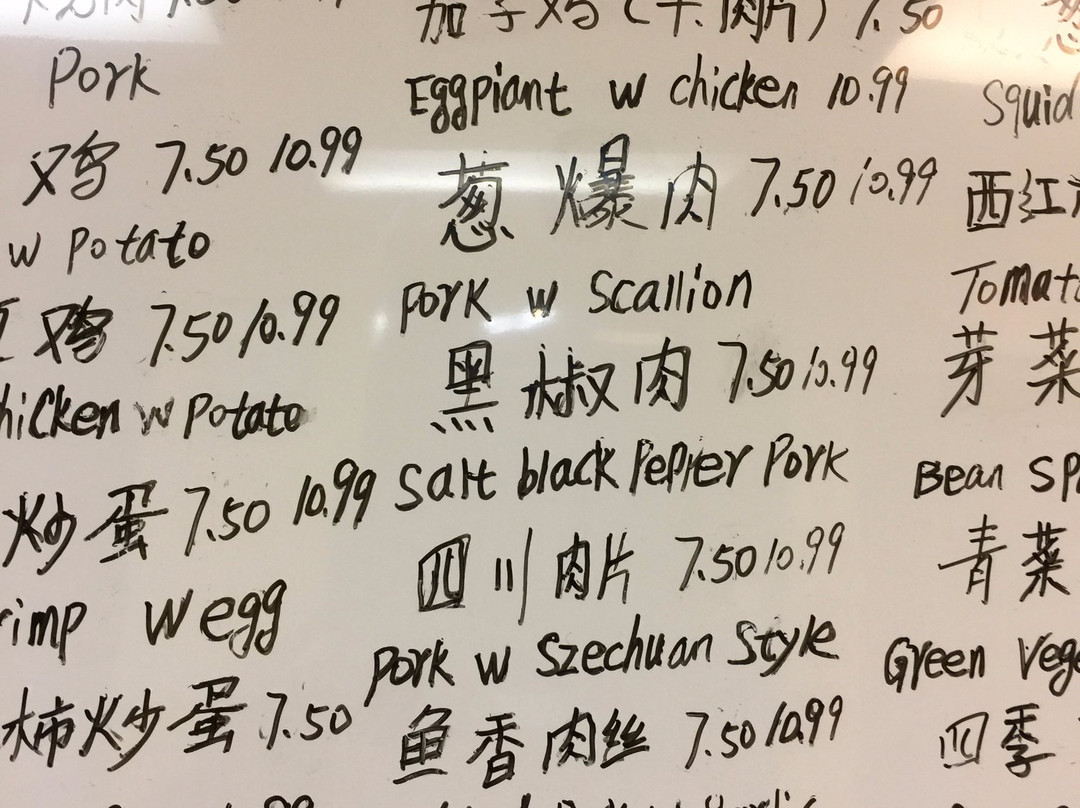 Pork
鸡 7.50 10.99
w potato
鸡 7.50 10.99
hicken w potato
炒蛋 7.50 10.99
rimp w egg
柿炒蛋 7.50
茄子鸡(牛肉片) 7.50
Eggpiant w chicken 10.99
葱爆肉 7.50 10.99
Pork w Scallion
黑椒肉 7.50 10.99
Salt black Pepper Pork
四川肉片 7.50 10.99
Pork w Szechuan Style
鱼香肉丝 7.50 10.99
Squid
西红
Tomato
芽菜
Bean Sp
青菜
Green Vege
四季